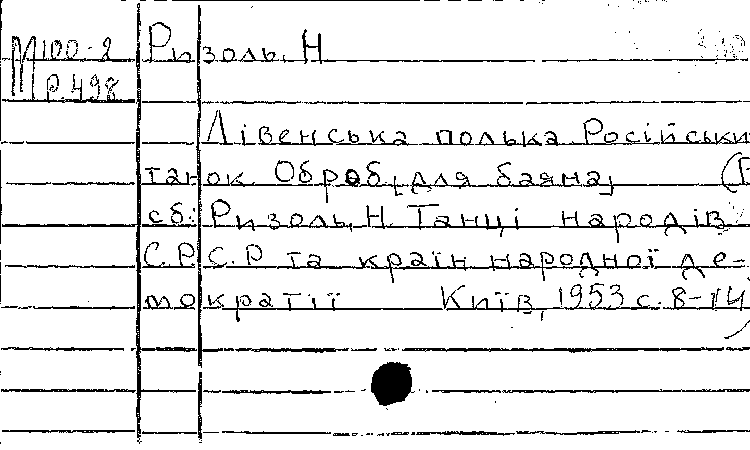 М100-2 Ризоль, Н
Р.498
Лівенська полька Російськи
танок. Оброб[для баяна] (В
сб: Ризоль, Н. Танці народів
С.Р.С.Р та країн народної де-
мократії Київ, 1953 с. 8-14)